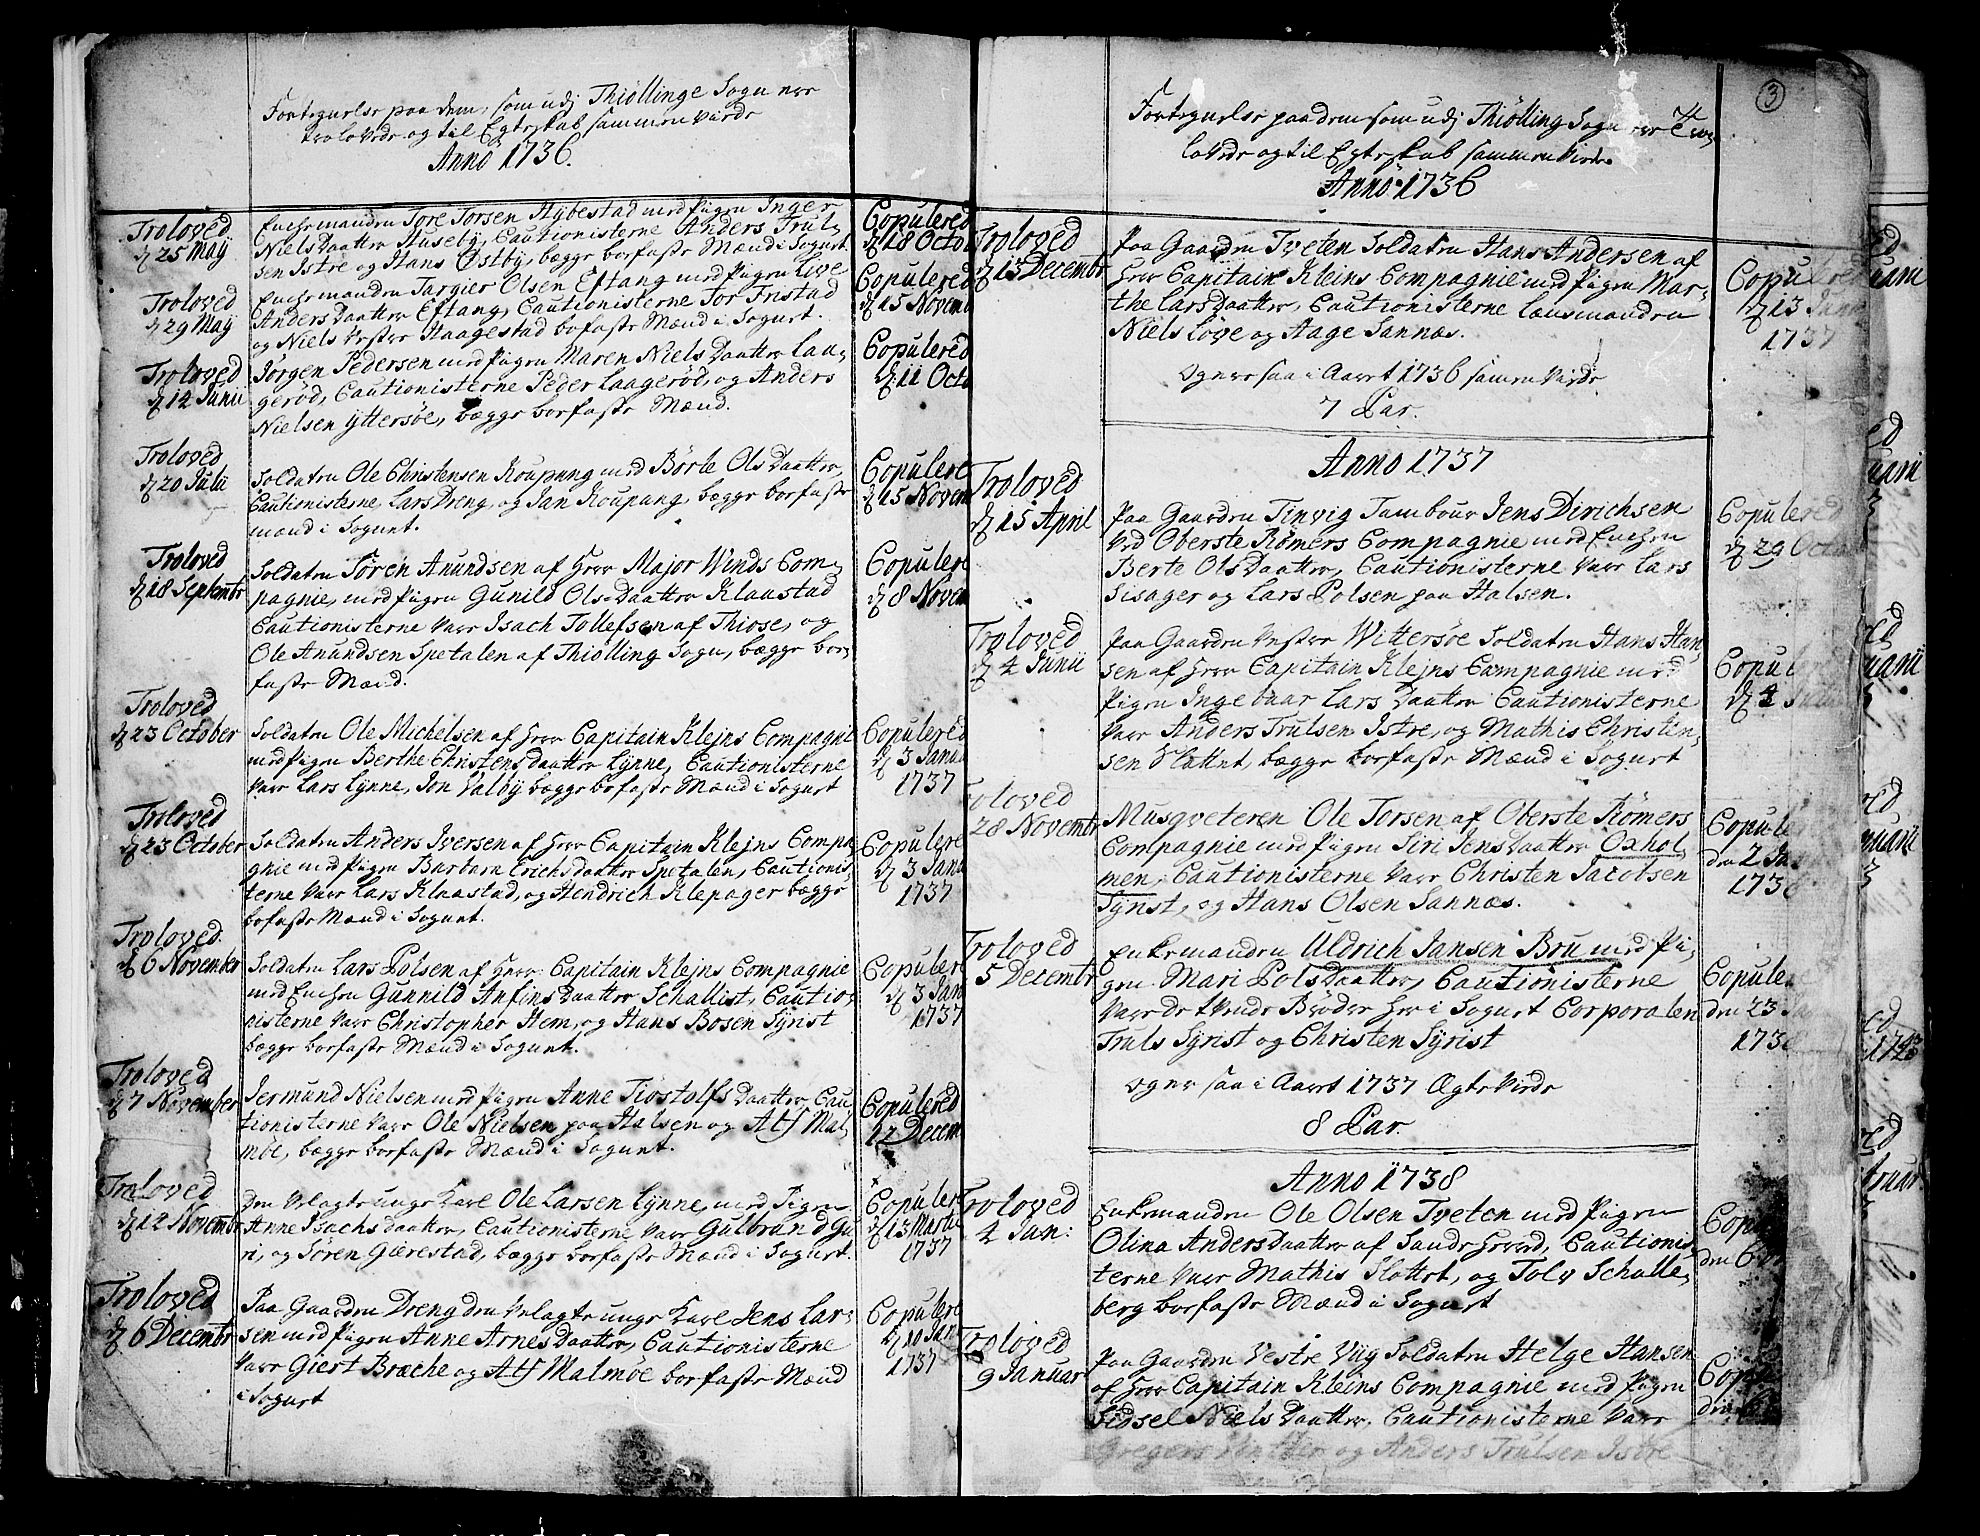 Fortegnelse paa dem, som udj Thiöllinge Sogn ere
trolovede og til Egteskab sammenviede
Anno 1736.
Troloved
d 25 Maij
Enchemanden Tore Torsen Hybestad med Pigen Inger
Niels Daatter Huseby, Cautionisterne Anders Trul-
sen Istre og Hans Østby, bægge boefaste Mænd i Sognet
Copulered
d 18 Octo
Troloved
d 29 Maij
Enchemanden Targier Olsen Eftang med Pigen Live
Anders Daatter Eftang, Cautionisterne Tor Fristad
og Niels Vestre Haagestad boefaste Mænd i Sognet.
Copulered
d 15 Novem
Troloved
d 14 Junii
Jörgen Pedersen med Pigen Maren Niels Daatter Lau-
gerød, Cautionisterne Peder Laagerød, og Anders
Nielsen Yttersöe, bægge boefaste Mænd.
Copulered
d 11 Octo
Troloved
d 20 Julii
Soldaten Ole Christensen Koupang med Börte Ols Daatter,
Cautionisterne, Lars Dreng, og Jan Koupang, bægge boefaste
mænd i Sognet.
Copulere
d 15 Novem
Troloved
d 18 Septembr
Soldaten Tören Anundsen af Herr Major Winds Com-
pagnie, med Pigen Gunild Ols Daatter Klaastad
Cautionisterne vare Isach Tollefsen af Thiose, og
Ole Anundsen Spetalen af Thiölling Sogn, bægge boe-
faste Mænd.
Copulere
d 8 Novem
Troloved
d 23 October
Soldaten Ole Michelsen af Herr Capitain Klejns Compagni
med Pigen Berthe Christens daatter Lynne, Cautionisterne
vare Lars Lynne, Jon Valby bægge boefaste Mænd i Sognet
Copulered
d 3 Janu
1737
Troloved
d 23 October
Soldaten Anders Iversen af Herr Capitain Klejns Compa
gnie med Pigen Barbara Erichs daatter Spetalen, Cautionis
terne vare Lars Klaastad, og Hendrich Klepager bægge
boefaste Mænd i Sognet.
Copulere
d 3 Janu
1737
Troloved
d 6 November
Soldaten Lars Polsen af Herr Capitain Klejns Compagnie
med Enchen Gunnild Anfins Daatter Schallist, Cautio-
nisterne vare Christopher Hem, og Hans Bosen Syrist
bægge boefaste Mænd i Sognet.
Copulere
d 3 Jan
1737
Troloved
d 7 November
Jermund Nielsen med Pigen Anne Tiostolfs Daatter, Cau-
tionisterne vare Ole Nielsen paa Halsen og Alf Mal-
möe, bægge boefaste Mænd i Sognet.
Copulered
12 Decem
Troloved
d 14 Novembr
Den velagte unge Karl Ole Larsen Lynne, med Pigen
Anne Isachs Daatter, Cautionisterne vare Gulbrand Gu
ri, og Sören Gierestad, bægge boefaste Mænd i Sognet.
Copulere
d 13 Martii
1737
Troloved
d 6 Decembr
Paa Gaarden Dreng den velagte unge Karl Jens Lar-
sen med Pigen Anne Arnes Daatter, Cautionisterne
vare Giert Brache og Alf Malmöe boefaste Mænd
i Sognet
Copulere
d 10 Jan
1737
3
Fortegnelse paa dem som udj Thiölling Sogn ere Troe-
lovede og til Egteskab sammenviede
Anno 1736
Troloved
d 13 Decembr
Paa Gaarden Tveten Soldaten Hans Andersen af
Herr Capitain Kleins Compagnie med Pigen Mar-
the Lars Daatter, Cautionisterne Lensmanden
Niels Löve og Aage Sannæs.
Copulered
d 13 Janu
1737
Ogner saa i Aaret 1736 sammenviede
7 Par.
Anno 1737
Troloved
d 15 April
Paa Gaarden Tinvig Tambour Jens Dirichsen
ved Oberste Römers Compagnie med Enchen
Berte Ols Daatter, Cautionisterne vare Lars
Sisager og Lars Polsen paa Halsen.
Copulered
d 29 Octo
Troloved
d 4 Junii
Paa Gaarden Vestre Wittersöe Soldaten Hans Han-
sen af Herr Capitain Klejns Compagnie med
Pigen Ingebaar Lars Daatter Cautionisterne
vare Anders Trulsen Istre, og Mathis Christen-
sen Slattet, bægge boefaste Mænd i Sognet
Copul
d 4
Troloved
28 Novembr
Musqveteren Ole Torsen af Oberste Römers
Compagnie med Pigen Siri Jens Daatter Oxhol-
men, Cautionisterne vare Christen Jacobsen
Syrist, og Hans Olsen Sannæs.
Copule
den 2 Ja
1738
Troloved
5 Decembr
Enkemanden Uldrich Jansen Bru med Pi-
gen Mari Pols Daatter, Cautionisterne
vare de tvende Brödre her i Sognet Corporalen
Truls Syrist og Christen Syrist
Copule
den 23
1738
Ogner saa i Aaret 1737 Ægteviede
8 Par.
Anno 1738
Troloved
4 Jan:
Enkemanden Ole Olsen Tveten med Pigen
Olina Anders Daatter af Sandeherred, Cautionis-
terne vare Mathis Slottet, og Tolv Schalle-
berg boefaste Mænd i Sognet
Copu
den 6
Troloved
9 Januar
Paa Gaarden Vestre Viig Soldaten Helge Hansen
af Herr Capitain Kleins Compagnie med Pigen
Sidsel Niels Daatter, Cautionisterne vare
Gregers Vintter og Anders Trulsen Istre
Cop